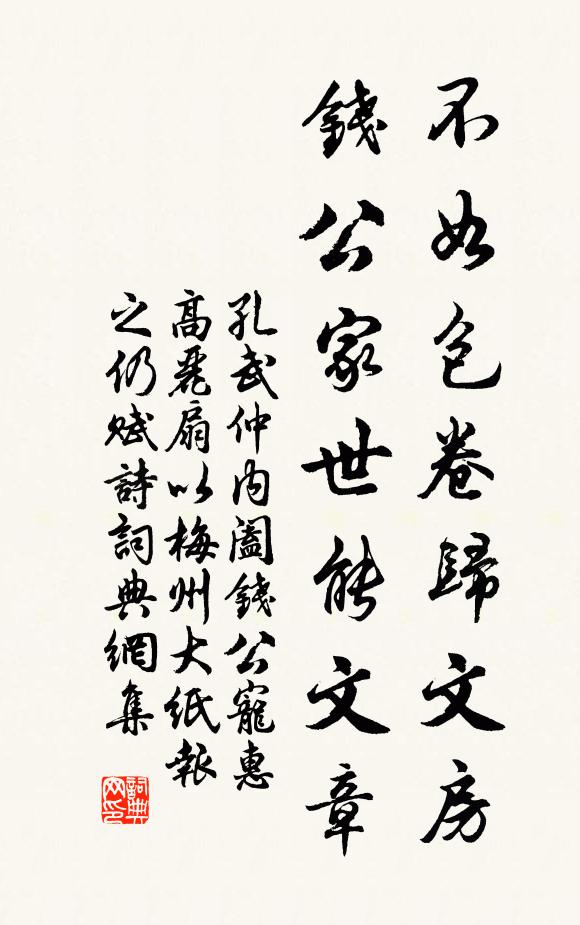 不如包卷歸文房
錢公家世能文章
孔武仲內閣錢公寵惠
高麗扇以梅州大紙報
之仍賦詩詞典網集
詞典网印